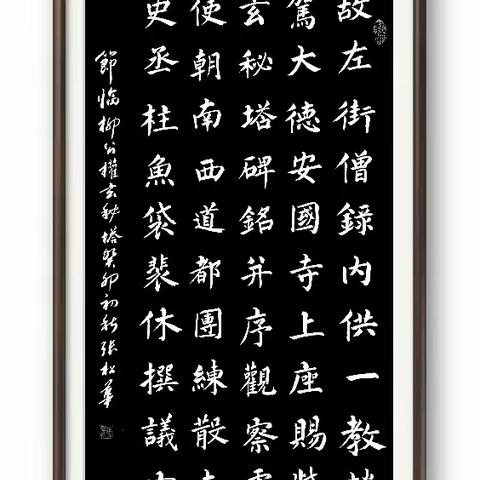 故左街僧錄內供一教
大德安國寺上座賜
玄秘塔碑銘并序觀察
使朝南西道都團練散
史丞柱魚袋裴休撰議
節臨柳公權玄秘塔癸卯初秋張松華